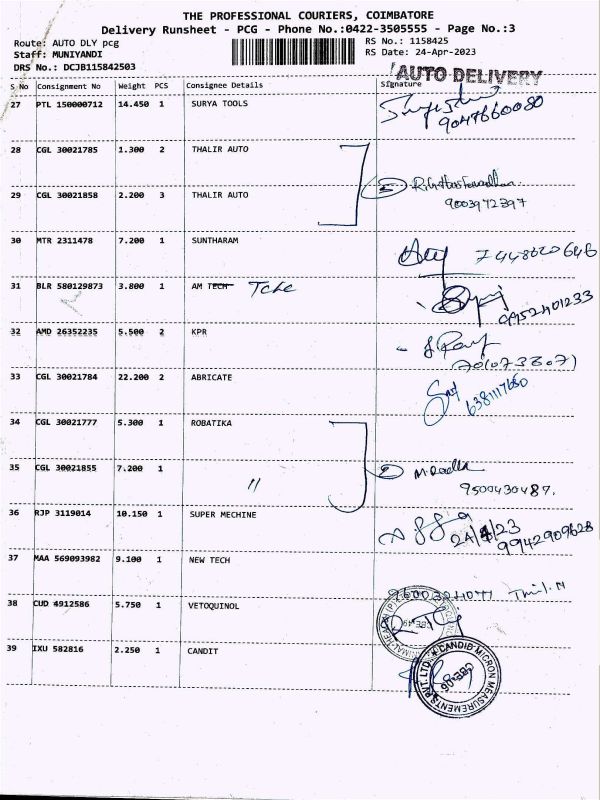 THE PROFESSIONAL COURIERS, COIMBATORE
Delivery Runsheet - PCG - Phone No.:0422-3505555 - Page No.:3
Route: AUTO DLY pcg
RS No.: 1158425
Staff: MUNIYANDI
RS Date: 24-Apr-2023
DRS No.: DCJB115842503
AUTO DELIVERY
S No Consignment No Weight PCS Consignee Details Signature
27 PTL 150000712 14.450 1 SURYA TOOLS
9047660080
28 CGL 30021785 1.300 2 THALIR AUTO
5
9003972397
29 CGL 30021858 2.200 3 THALIR AUTO
30 MTR 2311478 7.200 1 SUNTHARAM
7448620646
31 BLR 580129873 3.800 1 AM TECH
09952401233
32 AMD 26352235 5.500 2 KPR
33 CGL 30021784 22.200 2 ABRICATE
34 CGL 30021777 5.300 1 ROBATIKA
2 M. Radha
9500430487.
35 CGL 30021855 7.200 1
36 RJP 3119014 10.150 1 SUPER MECHINE
24/4/23
9942909628
37 MAA 569093982 9.100 1 NEW TECH
38 CUD 4912586 5.750 1 VETOQUINOL
39 IXU 582816 2.250 1 CANDIT
CANDID MICRON MEASUREMENTS PVT. LTD.
CBE-06